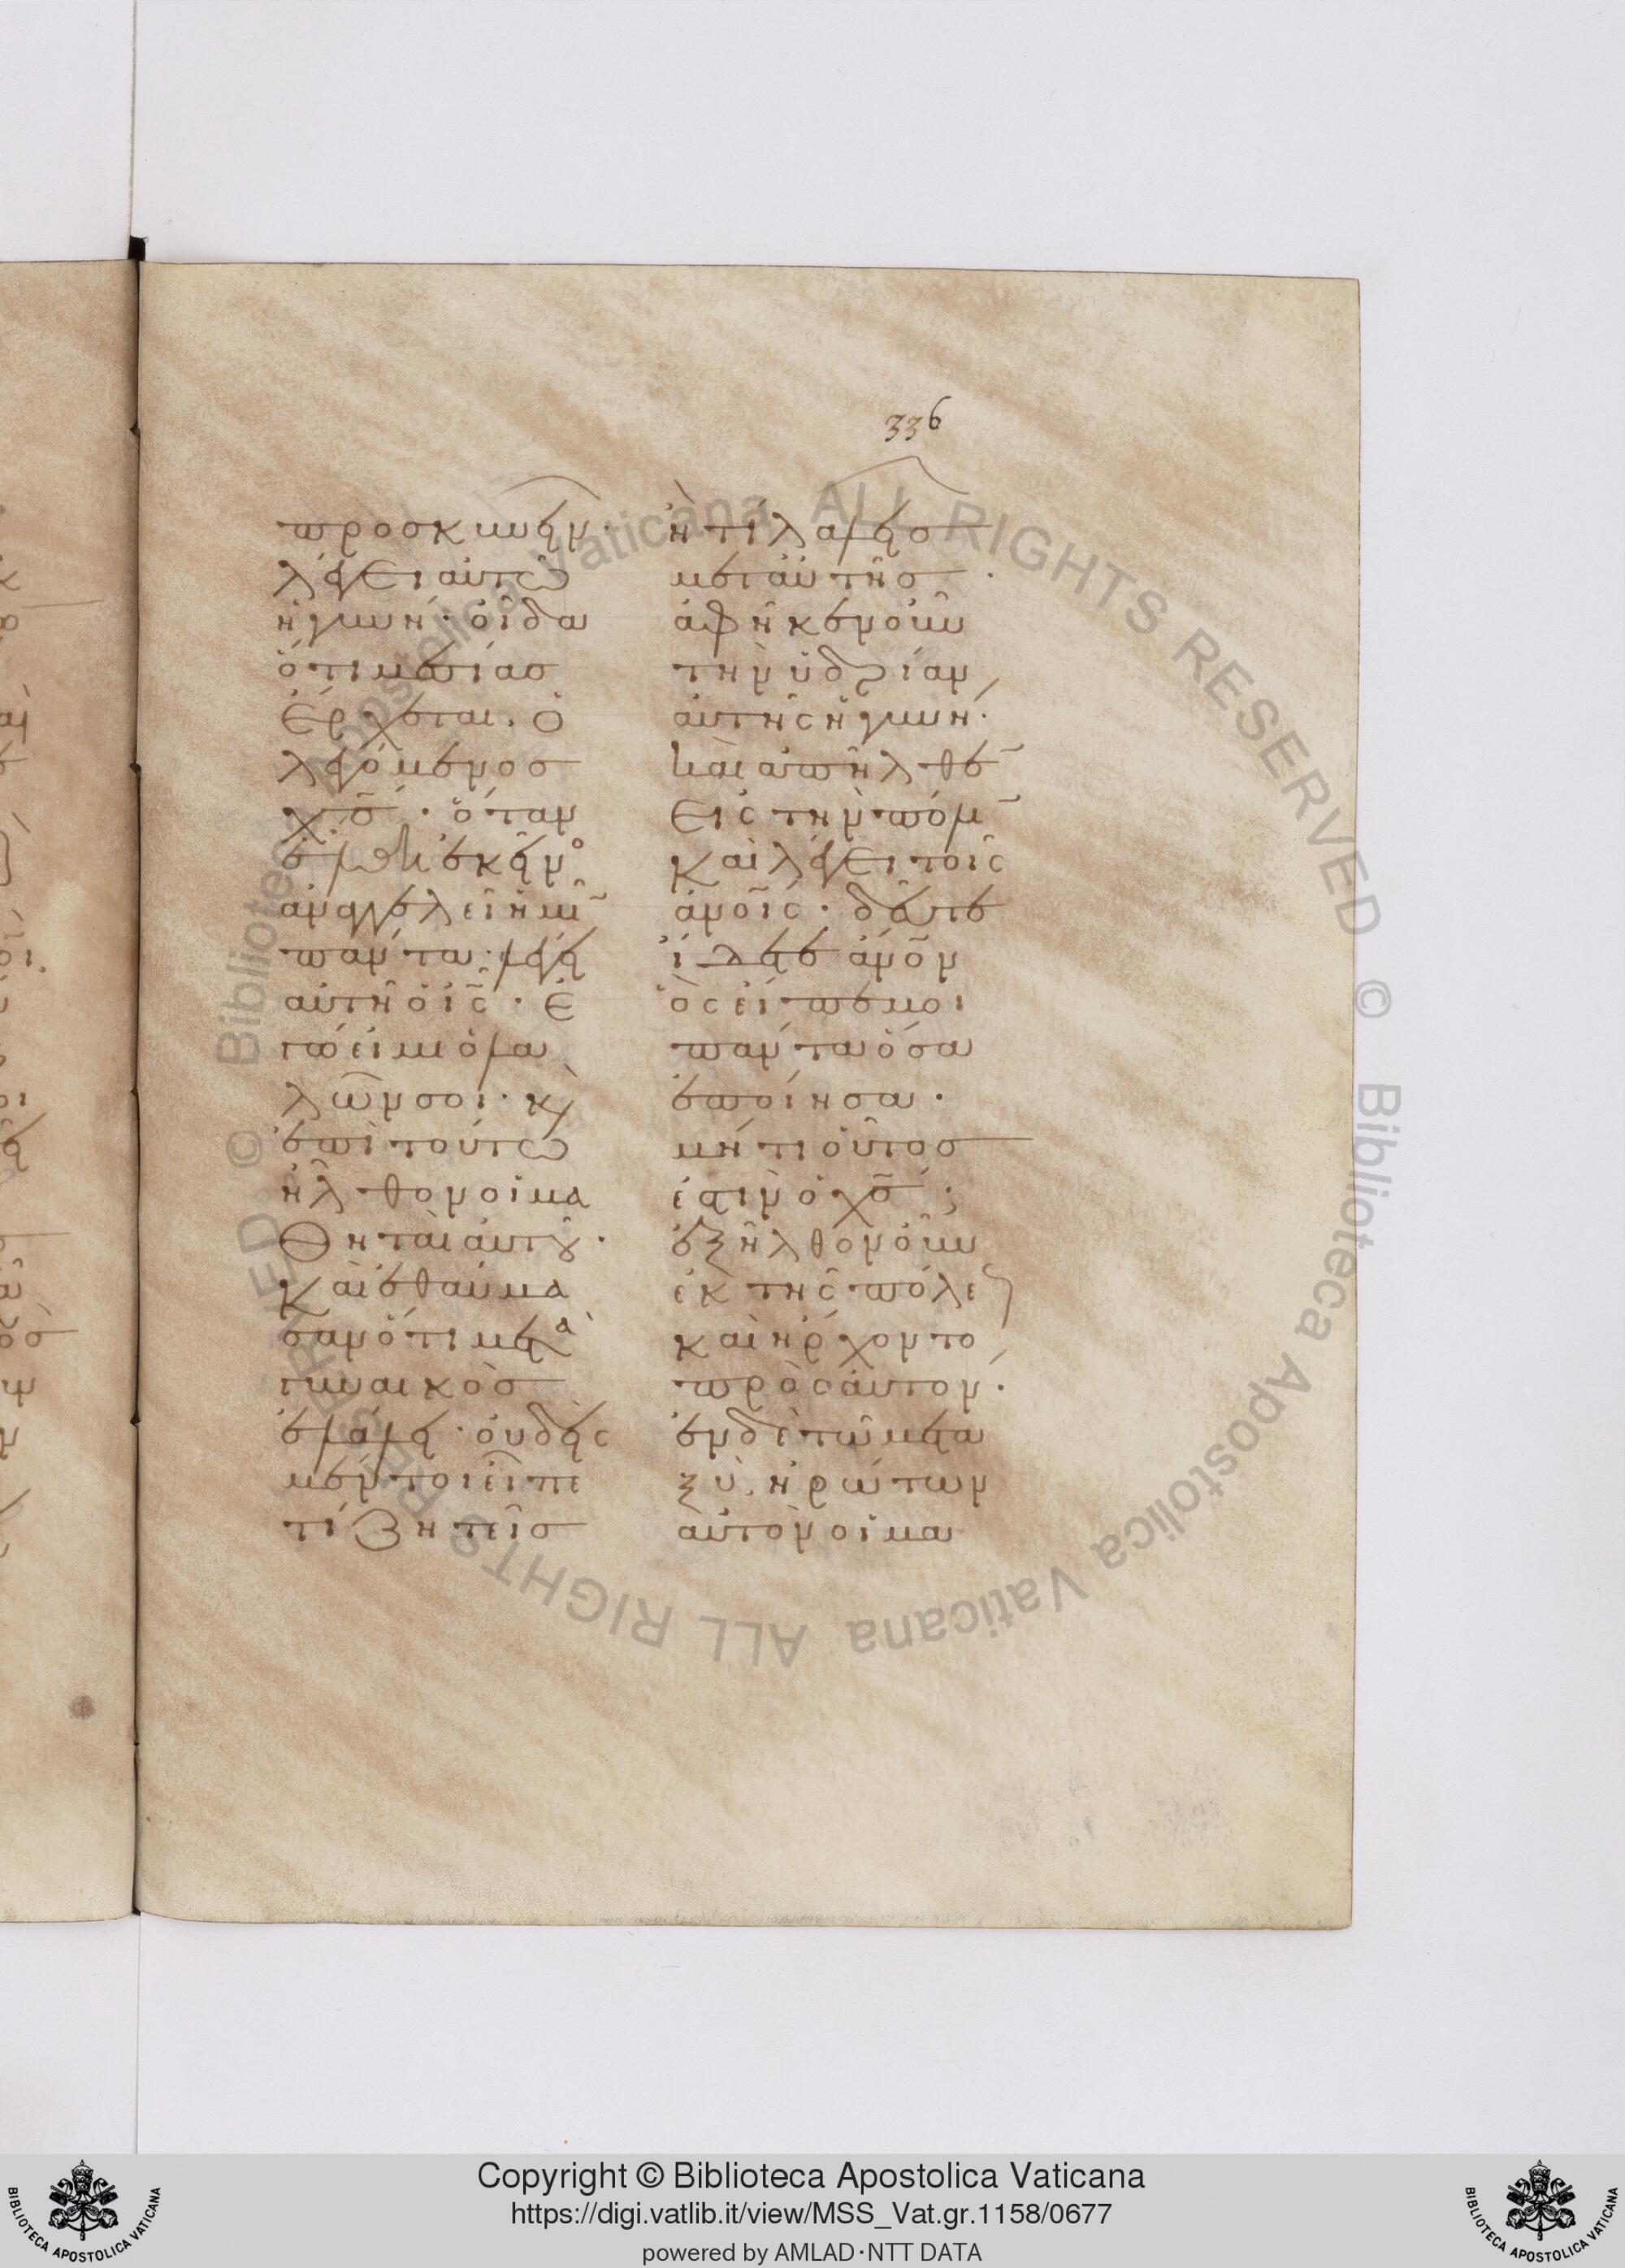 336
προσκυνεῖν·
λέγει αὐτῶ
ἡ γυνή· οἶδα
ὅτι μεσίας
ἔρχεται· ὁ
λεγόμενος
χς̄· ὅταν
ἔλθη ἐκεῖνο
ἀναγγελεῖ ἡμῖ̄
πάντα· λέγει
αὐτῆ ὁ ις̄· ἐ
γώ εἰμι ὁ λα
λῶν σοι· κὶ
ἐπὶ τούτω
ἦλθον οἱ μα
θηταὶ αὐτοῦ·
καὶ ἐθαύμα
σαν ὅτι μετὰ
γυναικὸς
ἐλάλει· οὐδεὶς
μέντοι εἶπε
τί ζητεῖς
ἢ τί λαλεῖς
μετ' αὐτῆς·
ἀφῆκεν οὖν
τὴν ὑδρίαν
αὐτῆς ἡ γυνή·
καὶ ἀπῆλθε̄
εἰς τὴν πόλῑ
καὶ λέγει τοῖς
ἀνοῖς· δεῦτε
ἴδετε ἀνο̄ν
ὃς εἶπέ μοι
πάντα ὅσα
ἐποίησα·
μήτι οὗτος
ἐστὶν ὁ χς̄;
ἐξῆλθον οὖν
ἐκ τῆς πόλεως
καὶ ἤρχοντο
πρὸς αὐτόν·
ἐν δὲ τῶ μετα
ξὺ, ἠρώτων
αὐτὸν οἱ μα
Copyright © Biblioteca Apostolica Vaticana
https://digi.vatlib.it/view/MSS_Vat.gr.1158/0677
powered by AMLAD·NTT DATA
BIBLIOTECA APOSTOLICA VATICANA
BIBLIOTECA APOSTOLICA VATICANA
© Biblioteca Apostolica Vaticana ALL RIGHTS RESERVED © Biblioteca Apostolica Vaticana ALL RIGHTS RESERVED